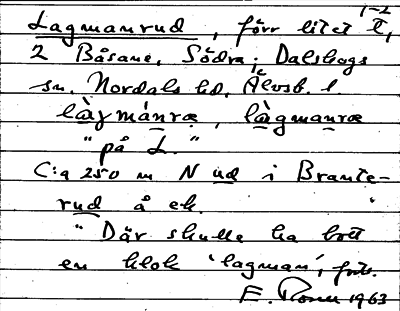 1-2
Lagmanrud, förr litet t,
2 Båsane, Södra; Dalskogs
sn. Nordals hd. Älvsb. l.
làgmánræ, làgmanræ
"på L."
C:a 250 m N ud i Brante-
rud å ek.
"Där skulle ha bott
en klok 'lagman',
E. 1963